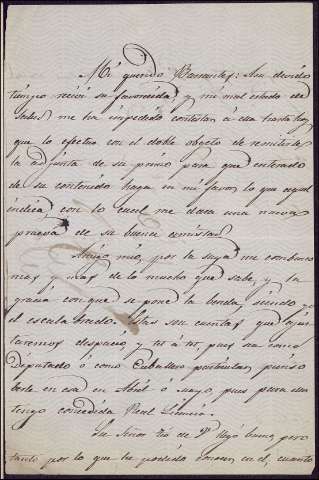 Mi querido Barrantes: A su debido
tiempo recibí su favorecida, y mi mal estado de
salud me ha impedido contestar á ella hasta hoy
que lo efectuo con el doble objeto de remitirle
la adjunta de su primo para que enterado
de su contenido haga en mi favor lo que aquel
indica con lo cual me dara una nueva
prueba de su buena amistad.
Amigo mio, por la suya me combenzo
mas y mas de lo mucho que sabe, y la
gracia con que se pone la benda, siendo yo
el escalabrado. Estas son cuentas que ajus-
taremos despacio, y tú á tú, pues sea como
Diputado ó como Caballero particular, pienso
berle en esa en Abril ó Mayo, pues para ello
tengo concedida Real Licencia.
Su Señor Tio de V. llegó bueno, pero
tanto por lo que he podido conocer en el, cuanto